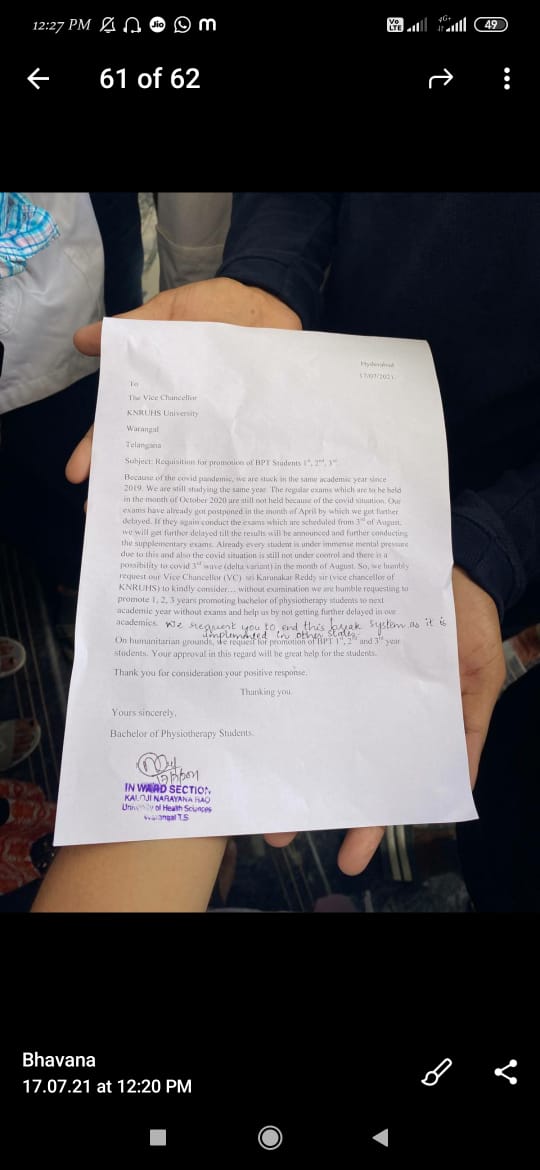 12:27 PM
Jio
Vo
LTE
4G+
49
61 of 62
Hyderabad
17/07/2021.
To
The Vice Chancellor
KNRUHS University
Warangal
Telangana
Subject: Requisition for promotion of BPT Students 1st, 2nd, 3rd
Because of the covid pandemic, we are stuck in the same academic year since
2019. We are still studying the same year. The regular exams which are to be held
in the month of October 2020 are still not held because of the covid situation. Our
exams have already got postponed in the month of April by which we got further
delayed. If they again conduct the exams which are scheduled from 3rd of August,
we will get further delayed till the results will be announced and further conducting
the supplementary exams. Already every student is under immense mental pressure
due to this and also the covid situation is still not under control and there is a
possibility to covid 3rd wave (delta variant) in the month of August. So, we humbly
request our Vice Chancellor (VC) sri Karunakar Reddy sir (vice chancellor of
KNRUHS) to kindly consider... without examination we are humble requesting to
promote 1, 2, 3 years promoting bachelor of physiotherapy students to next
academic year without exams and help us by not getting further delayed in our
academics. We request you to end this break system as it is
implemented in other states.
On humanitarian grounds, we request for promotion of BPT 1st, 2nd and 3rd year
students. Your approval in this regard will be great help for the students.
Thank you for consideration your positive response.
Thanking you.
Yours sincerely,
Bachelor of Physiotherapy Students.
IN WARD SECTION
KALOJI NARAYANA RAO
University of Health Sciences
Warangal T.S
Bhavana
17.07.21 at 12:20 PM